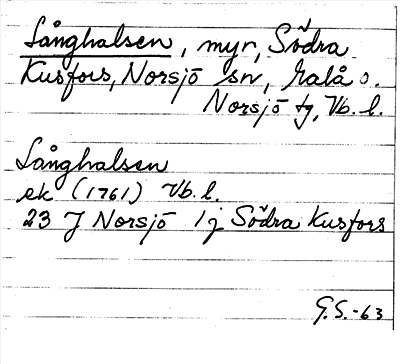 Långhalsen, myr, Södra
Kusfors, Norsjö sn, Malå o.
Norsjö tg, Vb. l.
Långhalsen
ek (1761) Vb. l.
23 J Norsjö 1j Södra Kusfors
G.S.-63